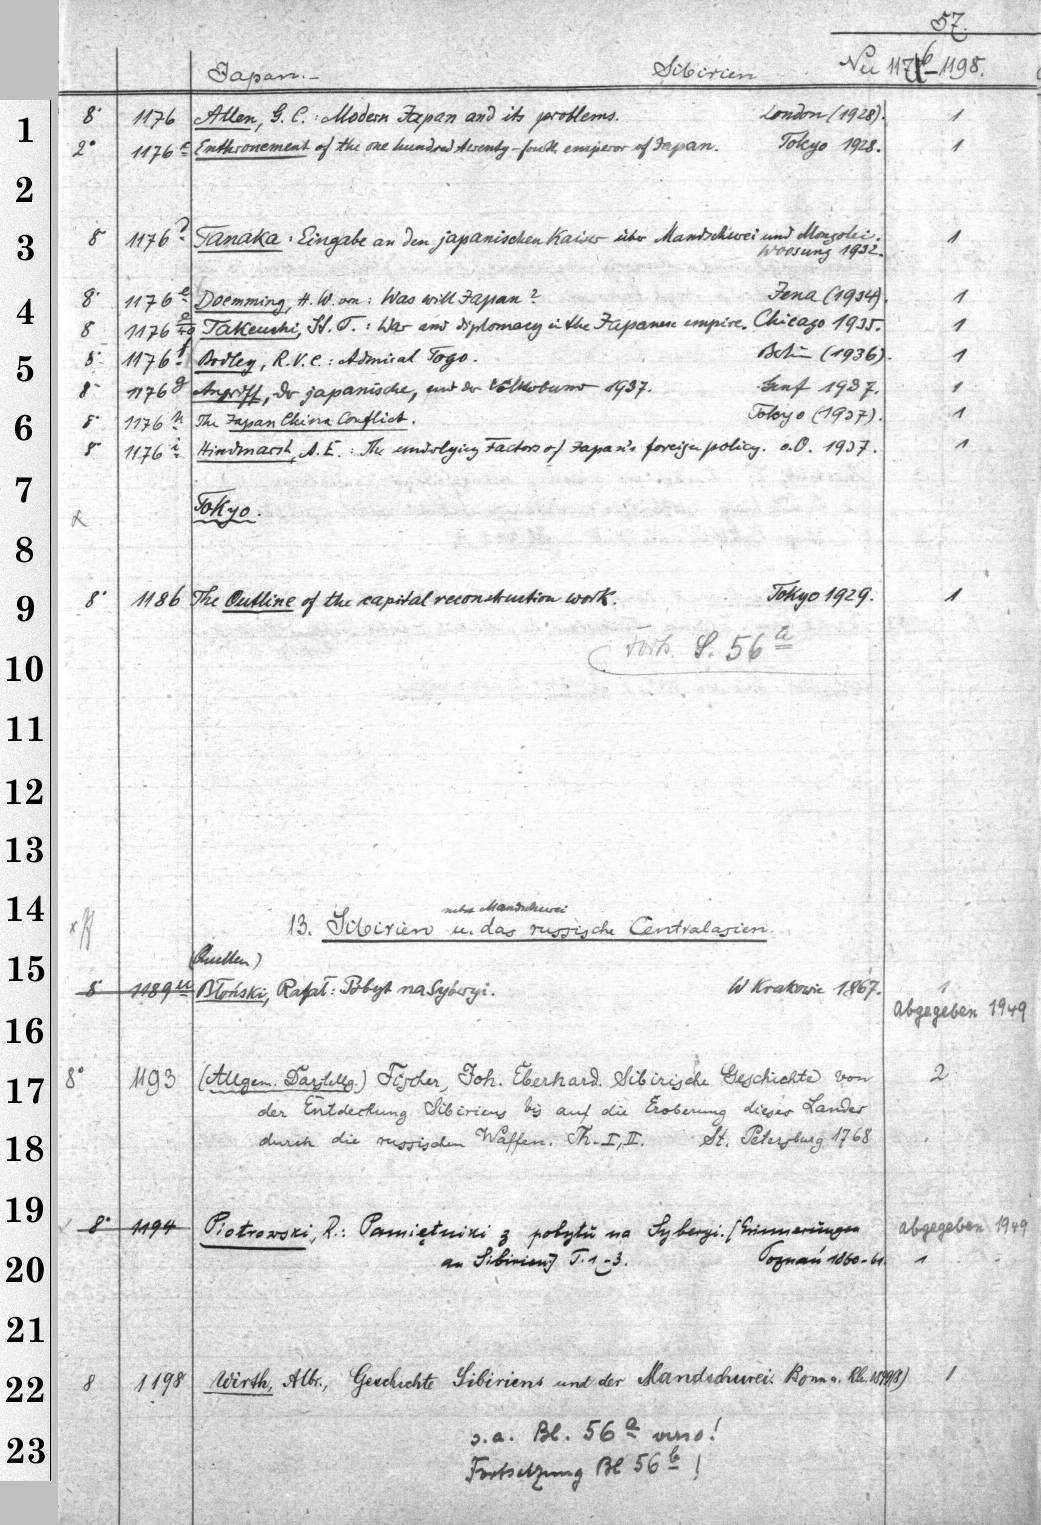 57.
Japan.- Sibirien Nu 1176b-1198.
1 8° 1176 Allen, G. C.: Modern Japan and its problems. London (1928). 1
2° 1176a Enthronement of the one hundred twenty-fourth emperor of Japan. Tokyo 1928. 1
2
3 8° 1176 Tanaka: Eingabe an den japanischen Kaiser über Mandschurei und Mongolei. 1
Woosung 1932.
4 8° 1176e Doemming, H. W. von: Was will Japan? Jena (1934). 1
8 1176 Takeuchi, St. T.: War and diplomacy in the Japanese empire. Chicago 1935. 1
5 8° 1176f Bodley, R.V.C.: Admiral Togo. Berlin (1936). 1
8° 1176g Angriff, der japanische, und der Völkerbund 1937. Genf 1937. 1
6 8° 1176h The Japan China Conflict. Tokyo (1937). 1
8° 1176i Hindmarsh, A. E.: The underlying Factors of Japan's foreign policy. o.O. 1937. 1
7 Tokyo.
8
9 8° 1186 The Outline of the capital reconstruction work. Tokyo 1929. 1
10 Forts. S. 56a
11
12
13
14 nebst Mandschurei
13. Sibirien u. das russische Centralasien.
15 (Quellen)
8° 1189 Błoński, Rafał: Pobyt na Syberyi. W Krakowie 1867. 1
16 Abgegeben 1949
17 8° 1193 (Allgem. Darstellg.) Fischer, Joh. Eberhard. Sibirische Geschichte von 2
der Entdeckung Sibiriens bis auf die Eroberung dieses Landes
18 durch die russischen Waffen. Th. I, II. St. Petersburg 1768
19 8° 1194 Piotrowski, R.: Pamiętniki z pobytu na Syberyi. [Erinnerungen abgegeben 1949
20 an Sibirien] T. 1-3. Poznań 1860-61. 1
21
22 8 1198 Wirth, Albr., Geschichte Sibiriens und der Mandschurei. Bonn 1
23 s.a. Bl. 56a verso!
Fortsetzung Bl 56b!